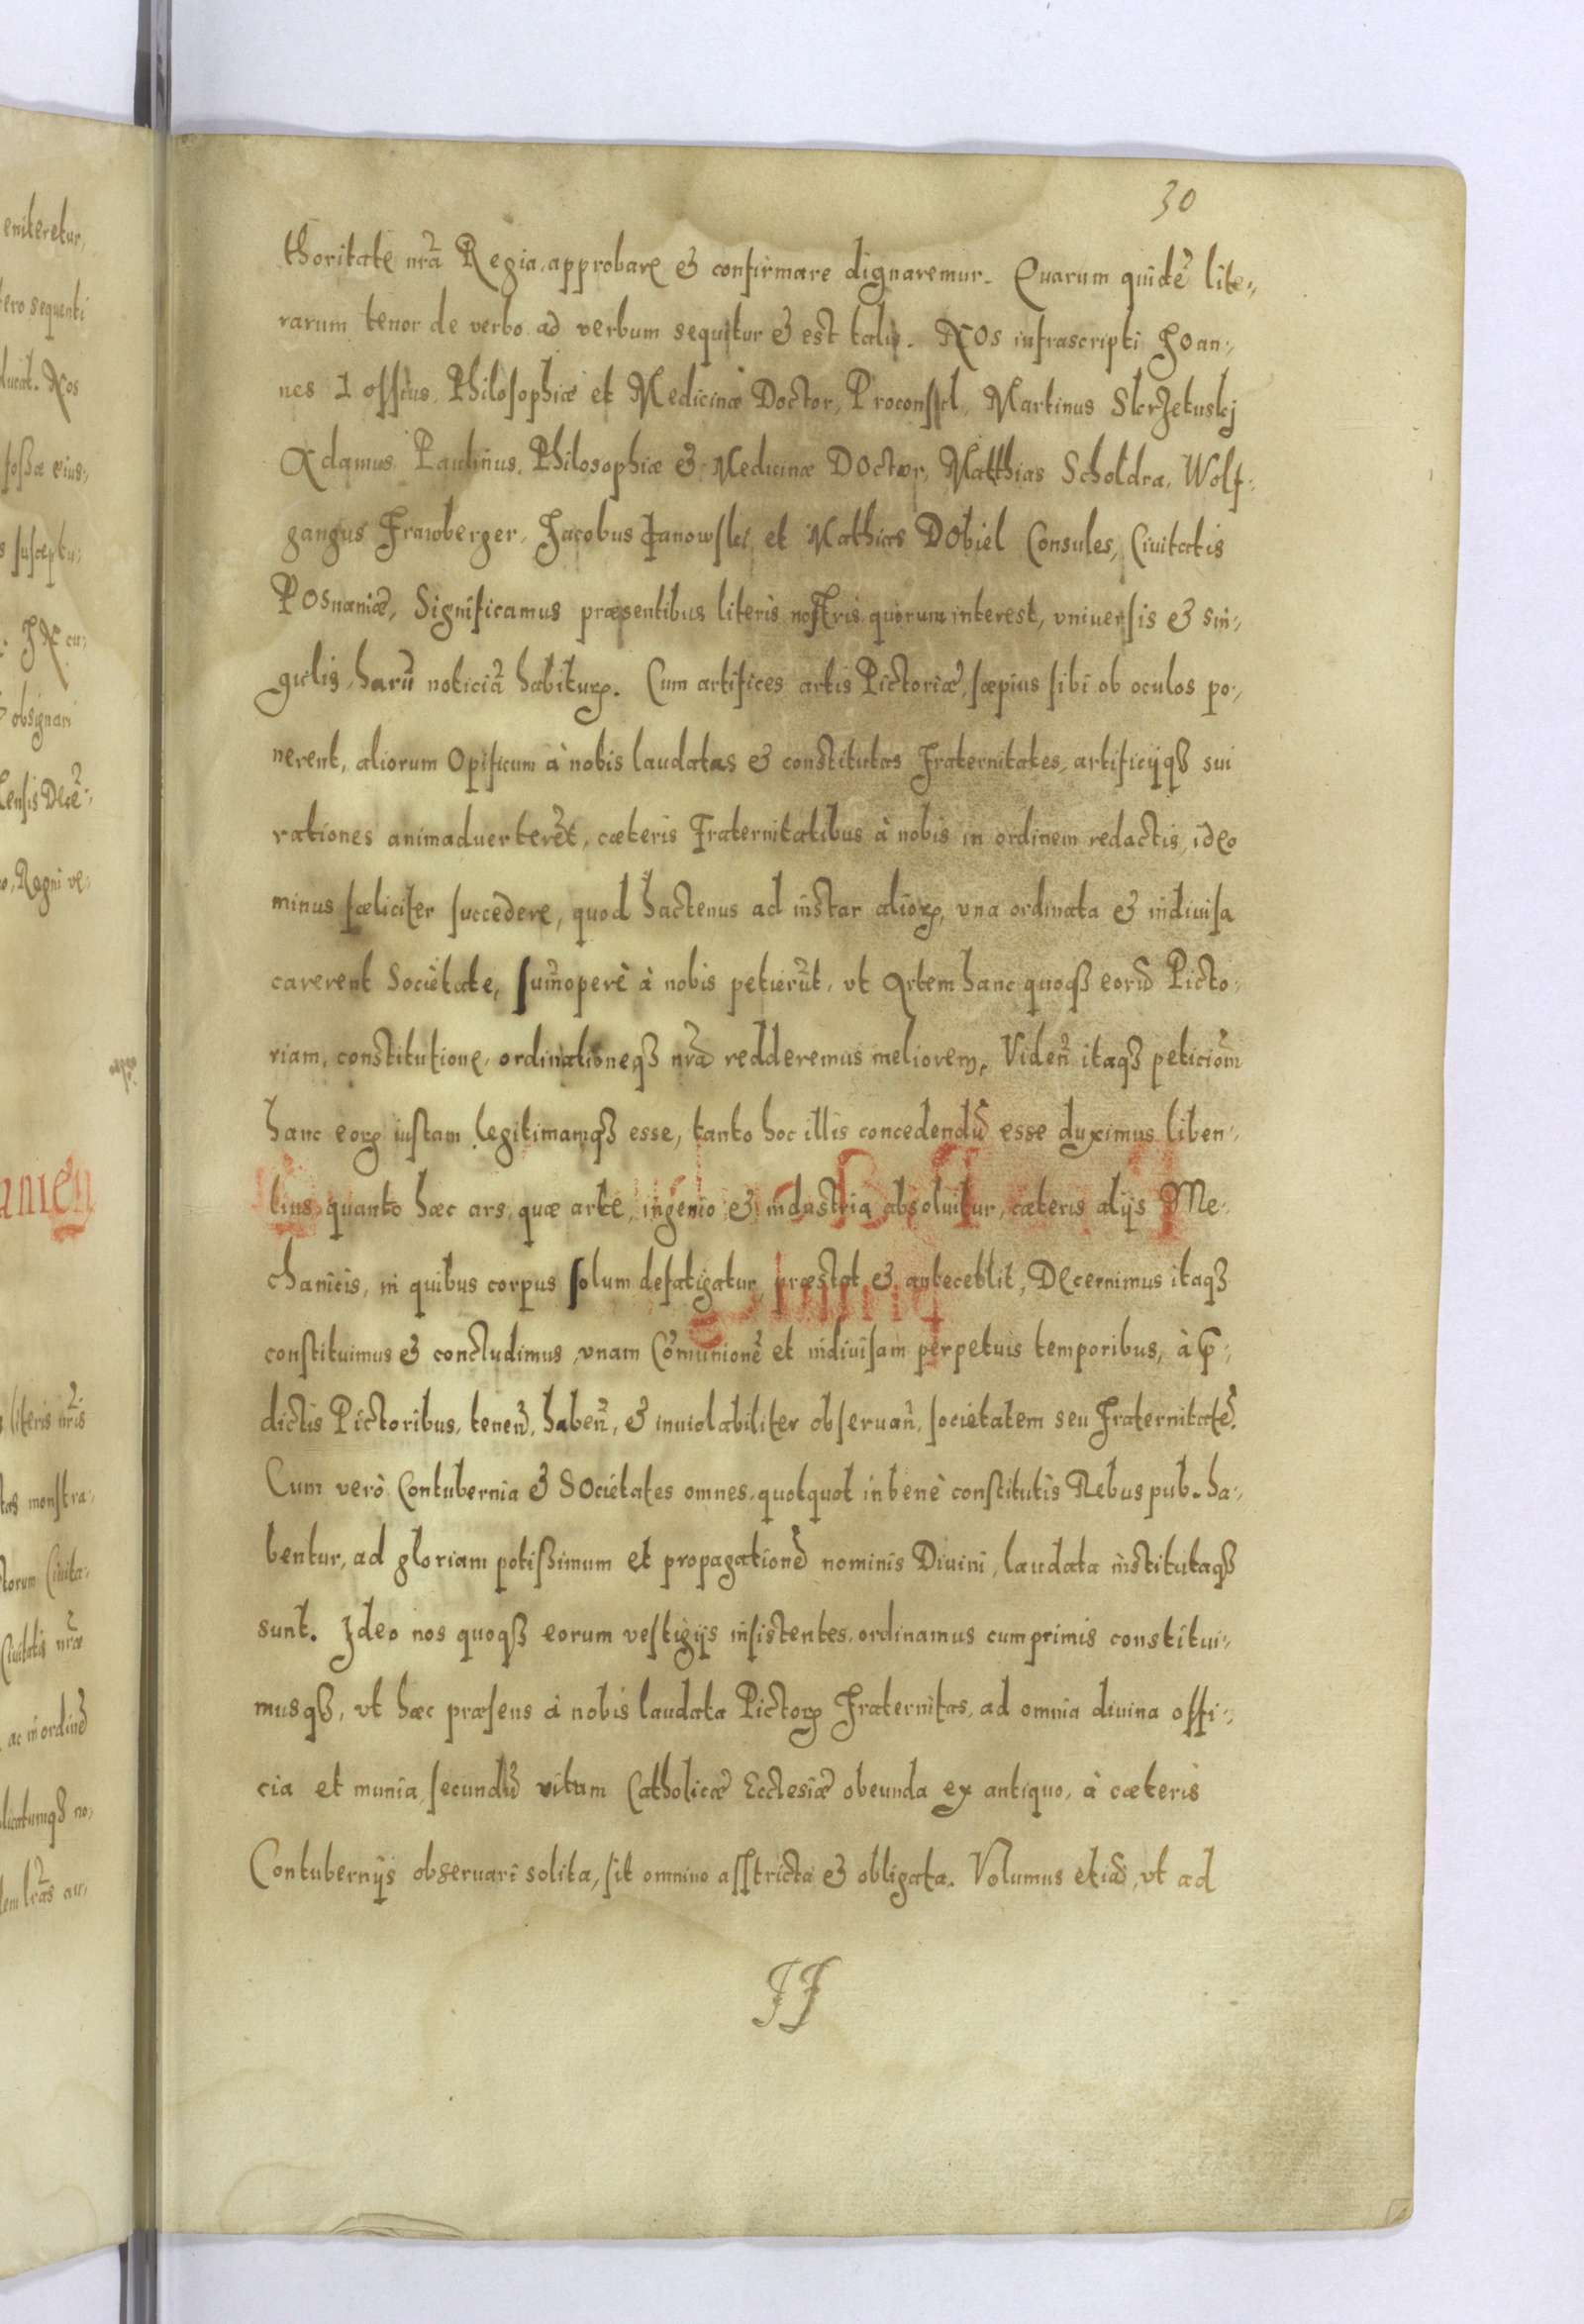 30
thoritate nrã Regia, approbare & confirmare dignaremur. Quarum quidẽ lite-
rarum tenor de verbo ad verbum sequitur & est talis. Nos infrascripti Joan-
nes Philosophiæ et Medicinæ Doctor, Proconsul, Martinus Skrzetuskj
Adamus Paulinus, Philosophiæ & Medicinæ Doctor, Matthias Scholdra, Wolf-
gangus Frawberger, Jacobus Janowski et Mathias Dobiel Consules, Ciuitatis
Posnaniæ, Significamus præsentibus literis nostris quorum interest, vniuersis & sin-
gulis, harũ noticiã habiturꝝ. Cum artifices artis Pictoriæ, sæpius sibi ob oculos po-
nerent, aliorum Opificum à nobis laudatas & constitutas Fraternitates, artificijqꝫ sui
rationes animaduerterẽt, cæteris Fraternitatibus à nobis in ordinem redactis, ideo
minus fæliciter succedere, quod hactenus ad instar aliorꝝ, vna ordinata & indiuisa
carerent Societate, sum̃operè à nobis petierũt, vt Artem hanc quoqꝫ eorũ Picto-
riam, constitutione, ordinationeqꝫ nrã redderemus meliorem, Viden̄ itaqꝫ peticiõm
hanc eorꝝ iustam legitimamqꝫ esse, tanto hoc illis concedendũ esse duximus liben-
tius, quanto hæc ars, quæ arte, ingenio & industria absoluitur, cæteris alijs Me-
chanicis, in quibus corpus solum defatigatur, præstat & antecellit, Decernimus itaqꝫ
constituimus & concludimus, vnam Cõmunionẽ et indiuisam perpetuis temporibus, à p̃-
dictis Pictoribus, tenen̄, haben̄, & inuiolabiliter obseruan̄, societatem seu Fraternitatẽ.
Cum verò Contubernia & Societates omnes, quotquot in benè constitutis Rebuspub. ha-
bentur, ad gloriam potißimum et propagationẽ nominis Diuini, laudata institutaqꝫ
sunt. Ideo nos quoqꝫ eorum vestigijs insistentes, ordinamus cumprimis constitui-
musqꝫ, vt hæc præsens à nobis laudata Pictorꝝ Fraternitas, ad omnia diuina offi-
cia et munia, secundũ vitam Catholicæ Ecclesiæ obeunda ex antiquo, à cæteris
Contubernijs obseruari solita, sit omnino asstricta & obligata. Volumus etiã, vt ad
JJ